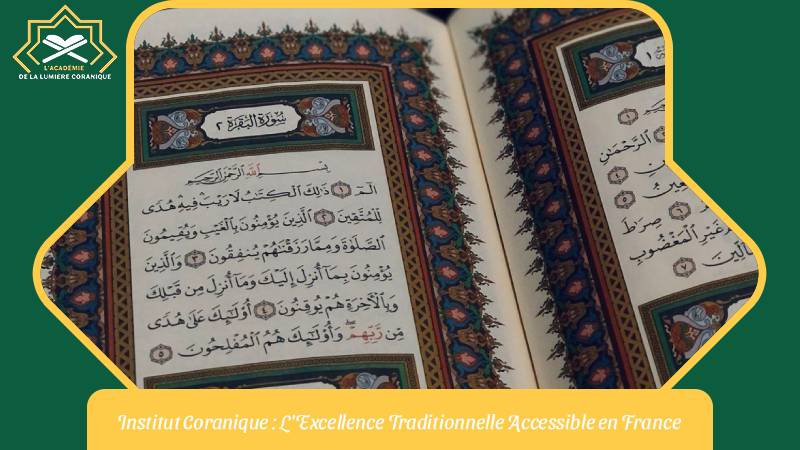 L'ACADÉMIE
DE LA LUMIÈRE CORANIQUE
سُورَةُ الْبَقَرَةِ ٢
بِسْمِ اللَّهِ الرَّحْمَٰنِ الرَّحِيمِ
الٓمٓ ١ ذَٰلِكَ الْكِتَٰبُ لَا رَيْبَ فِيهِ هُدًى
لِلْمُتَّقِينَ ٢ الَّذِينَ يُؤْمِنُونَ بِالْغَيْبِ وَيُقِيمُونَ
الصَّلَوٰةَ وَمِمَّا رَزَقْنَٰهُمْ يُنفِقُونَ ٣ وَالَّذِينَ
يُؤْمِنُونَ بِمَا أُنزِلَ إِلَيْكَ وَمَا أُنزِلَ مِن قَبْلِكَ
وَبِالْآخِرَةِ هُمْ يُوقِنُونَ ٤ أُوْلَٰٓئِكَ عَلَىٰ هُدًى
مِّن رَّبِّهِمْ ۖ وَأُوْلَٰٓئِكَ هُمُ الْمُفْلِحُونَ ٥
١
الرَّحْمَٰنِ
صِرَٰطَ
غَيْرِ الْمَغْضُوبِ
٧
Institut Coranique : L'Excellence Traditionnelle Accessible en France